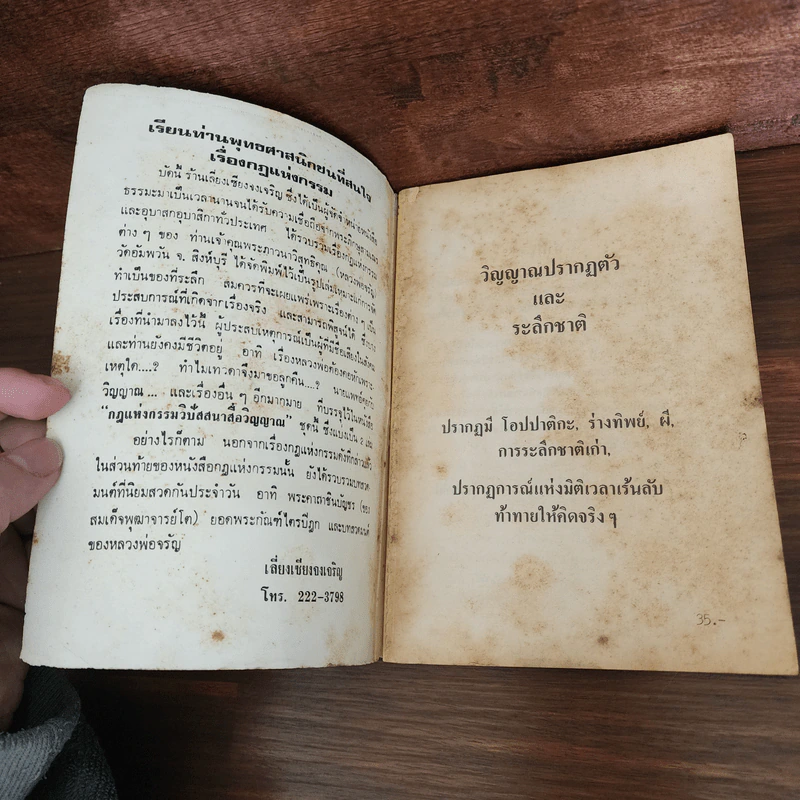 เรียนท่านพุทธศาสนิกชนที่สนใจ
เรื่องกฎแห่งกรรม
บัดนี้ ร้านเลี่ยงเซียงจงเจริญ ซึ่งได้เป็นผู้จัดจำหน่ายหนังสือ
ธรรมะมาเป็นเวลานานจนได้รับความเชื่อถือจากพระภิกษุสามเณร
และอุบาสกอุบาสิกาทั่วประเทศ ได้รวบรวมเรื่องกฎแห่งกรรม
ต่าง ๆ ของ ท่านเจ้าคุณพระภาวนาวิสุทธิคุณ (หลวงพ่อจรัญ)
วัดอัมพวัน จ. สิงห์บุรี ได้จัดพิมพ์ไว้เป็นรูปเล่มเหมาะแก่การ
ทำเป็นของที่ระลึก สมควรที่จะเผยแพร่เพราะเรื่องต่าง ๆ เป็น
ประสบการณ์ที่เกิดจากเรื่องจริง และสามารถพิสูจน์ได้ ซึ่งบาง
เรื่องที่นำมาลงไว้นี้ ผู้ประสบเหตุการณ์เป็นผู้ที่มีชื่อเสียงในสังคม
และท่านยังคงมีชีวิตอยู่ อาทิ เรื่องหลวงพ่อต้องคอหักเพราะ
เหตุใด....? ทำไมเทวดาจึงมาขอลูกคืน....? นายแพทย์คุยกับ
วิญญาณ ... และเรื่องอื่น ๆ อีกมากมาย ที่บรรจุไว้ในหนังสือ
"กฎแห่งกรรมวิปัสสนาสื่อวิญญาณ" ชุดนี้ ซึ่งแบ่งเป็น ๕ เล่ม
อย่างไรก็ตาม นอกจากเรื่องกฎแห่งกรรมดังที่กล่าวแล้ว
ในส่วนท้ายของหนังสือกฎแห่งกรรมนั้น ยังได้รวบรวมบทสวด
มนต์ที่นิยมสวดกันประจำวัน อาทิ พระคาถาชินบัญชร (ของ
สมเด็จพุฒาจารย์โต) ยอดพระกัณฑ์ไตรปิฎก และบทสวดมนต์
ของหลวงพ่อจรัญ
เลี่ยงเซียงจงเจริญ
โทร. 222-3798
วิญญาณปรากฏตัว
และ
ระลึกชาติ
ปรากฏมี โอปปาติกะ, ร่างทิพย์, ผี,
การระลึกชาติเก่า,
ปรากฏการณ์แห่งมิติเวลาเร้นลับ
ท้าทายให้คิดจริง ๆ
35.-